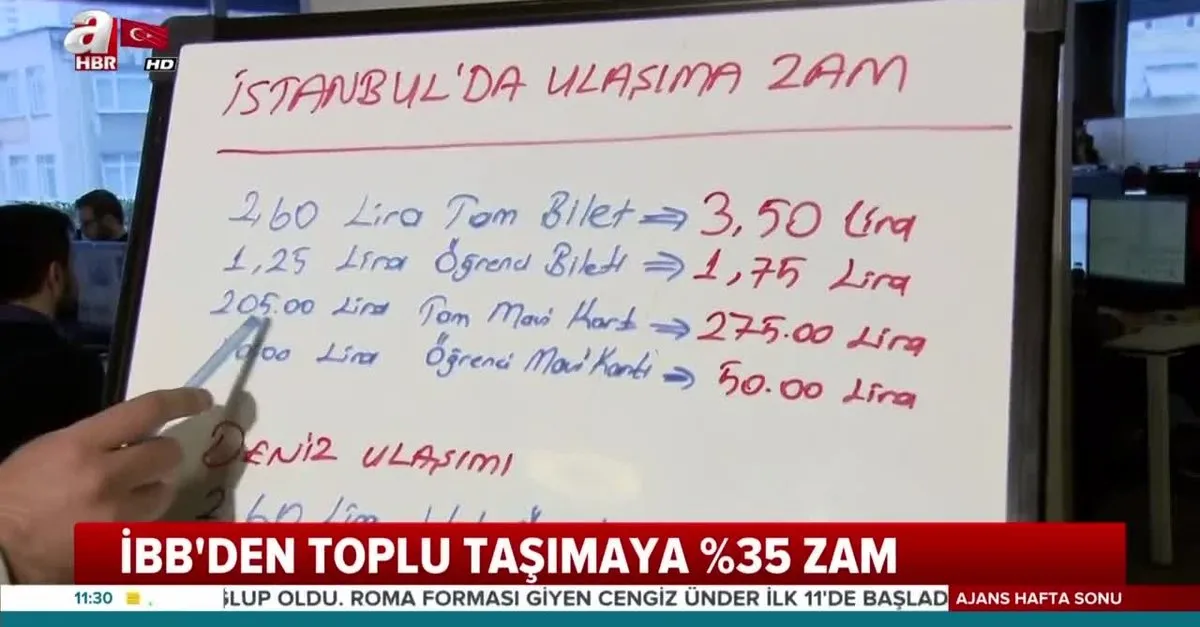 a
HBR
HD
İSTANBUL'DA ULAŞIMA ZAM
2,60 Lira Tam Bilet ⇒ 3,50 Lira
1,25 Lira Öğrenci Bileti ⇒ 1,75 Lira
205.00 Lira Tam Mavi Kart ⇒ 275.00 Lira
Lira Öğrenci Mavi Kartı ⇒ 50.00 Lira
DENİZ ULAŞIMI
2,60
İBB'DEN TOPLU TAŞIMAYA %35 ZAM
11:30 OLDU. ROMA FORMASI GİYEN CENGİZ ÜNDER İLK 11'DE BAŞLAD AJANS HAFTA SONU